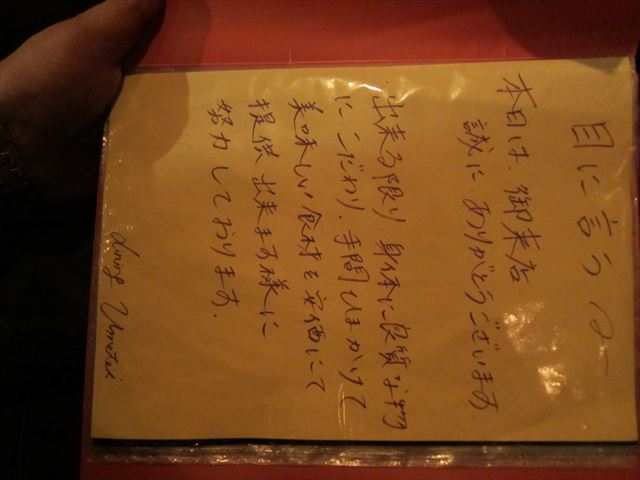 目に言う
本日は、御来店
誠に、ありがとうございます
出来る限り、身体に良質な物
に こだわり、手間ひまかけて
美味しい食材を安価にて
提供 出来ます様に
努力しております.
dining